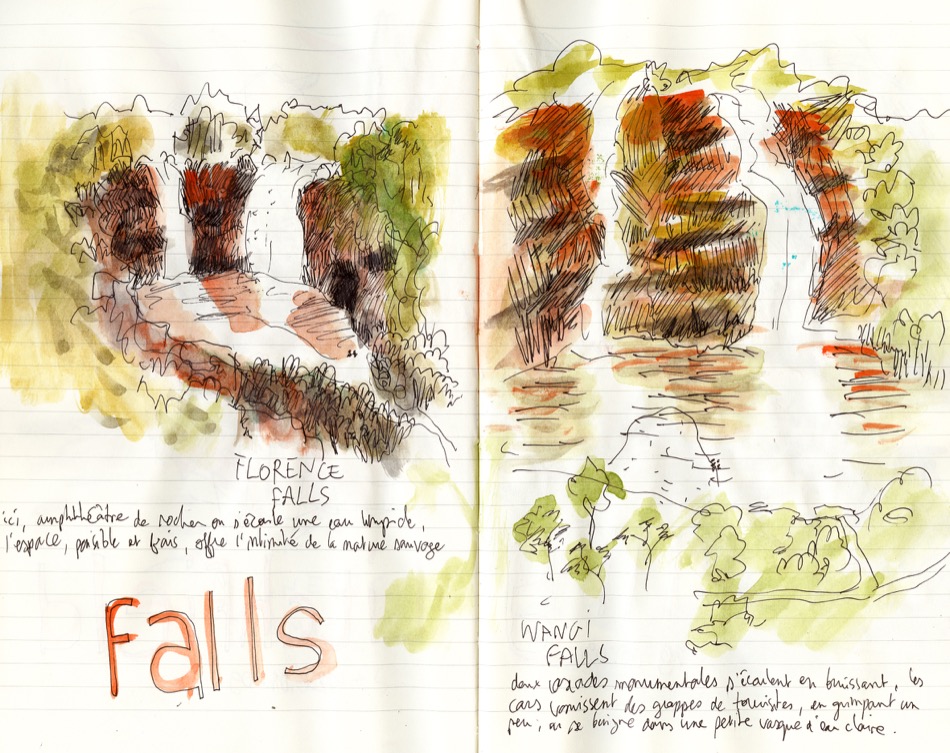 FLORENCE
FALLS
ici, amphithéâtre de rocher où s'écoule une eau limpide,
l'espace, paisible et frais, offre l'intimité de la nature sauvage
falls
WANGI
FALLS
deux cascades monumentales s'écoulent en bruissant, les
cars vomissent des grappes de touristes, en grimpant un
peu, on se baigne dans une petite vasque d'eau claire.